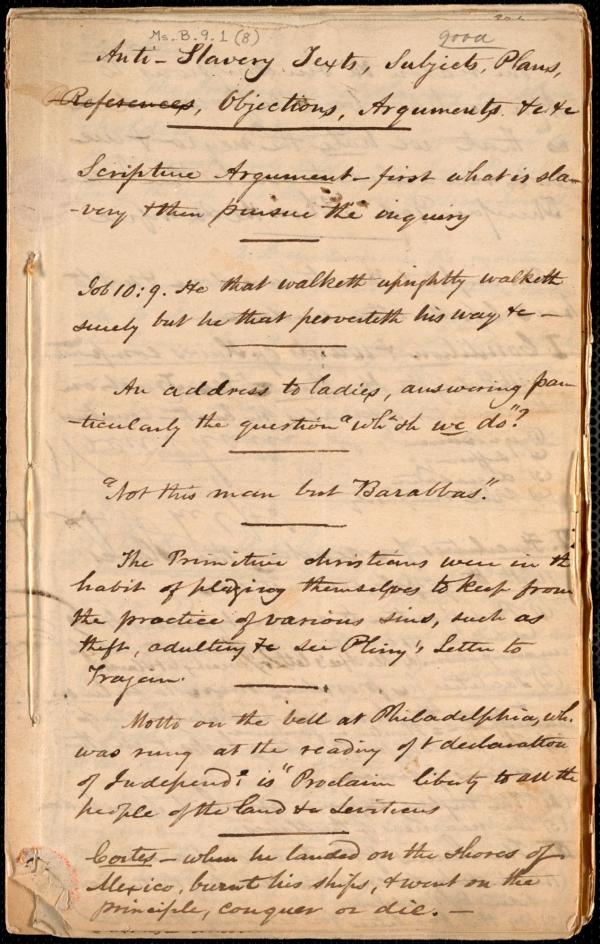 Ms. B. 9. 1 (8)
good
Anti-Slavery Texts, Subjects, Plans,
References, Objections, Arguments &c &c
Scripture Argument - first what is sla-
-very & then pursue the inquiry
Job 10:9. He that walketh uprightly walketh
surely but he that perverteth his way &c -
An address to ladies, answering par-
-ticularly the question "wh^t sh we do"?
"Not this man but Barabbas".
The Primitive christians were in th
habit of pledging themselves to keep from
the practice of various sins, such as
theft, adultery &c see Pliny's Letter to
Trajan.
Motto on the bell at Philadelphia, wh.
was rung at the reading of t declaration
of Independ^ce is "Proclaim liberty to all the
people of the land &c Leviticus
Cortes - when he landed on the shores of
Mexico, burnt his ships, & went on the
principle, conquer or die. -